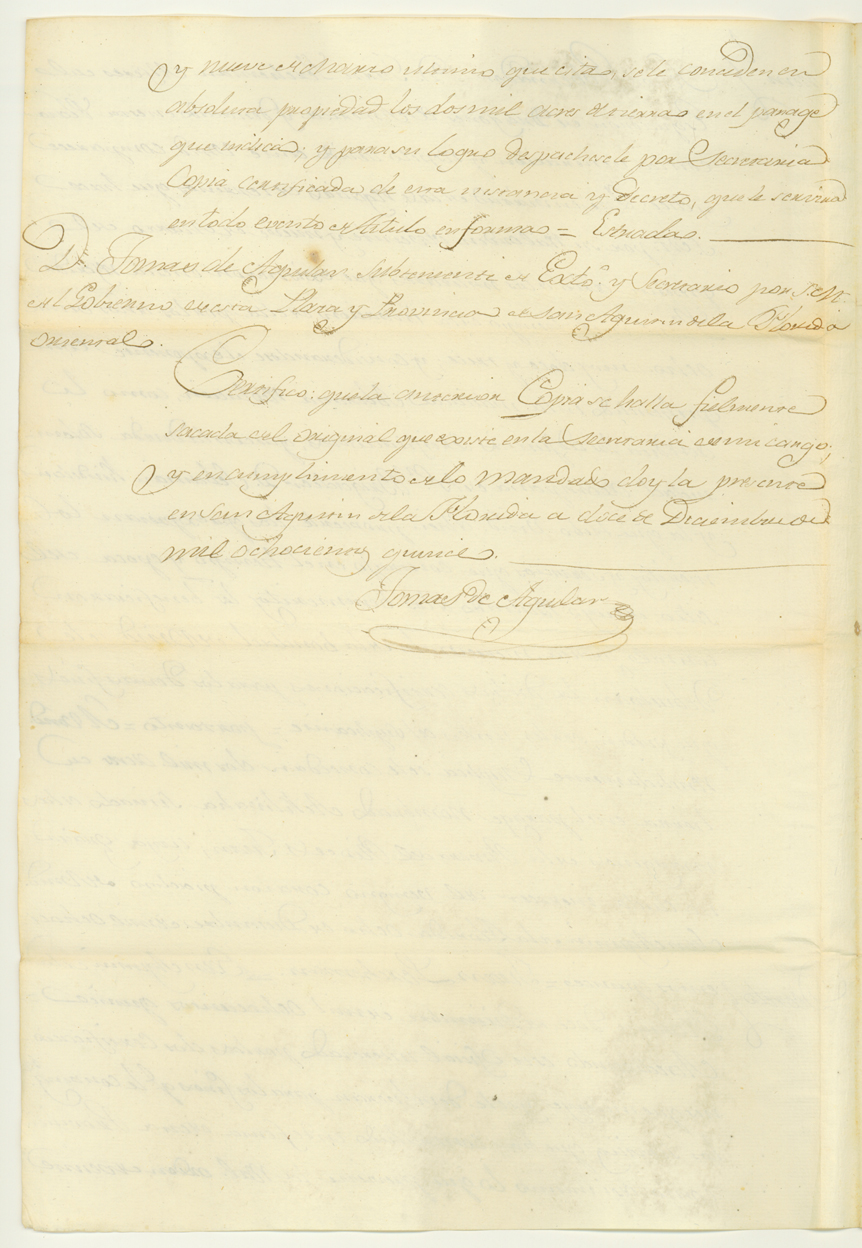 y nueve de Marzo ultimo que cita, se le conceden en
absoluta propiedad los dos mil acres de tierras en el parage
que indica; y para su logro despachesele por Secretaria
Copia certificada de esta instancia y decreto, que le servirá
en todo evento de titulo en forma = Estrada.
Dn. Tomas de Aguilar Subteniente de Exto. y Secretario por S.M.
del Gobierno de esta Plaza y Provincia de San Agustin de la Florida
Oriental.
Certifico: que la anterior Copia se halla fielmente
sacada del original que existe en la Secretaria de mi cargo;
y en cumplimiento de lo mandado doy la presente
en San Agustin de la Florida a doce de Diciembre de
mil ochocientos quince.
Tomas de Aguilar